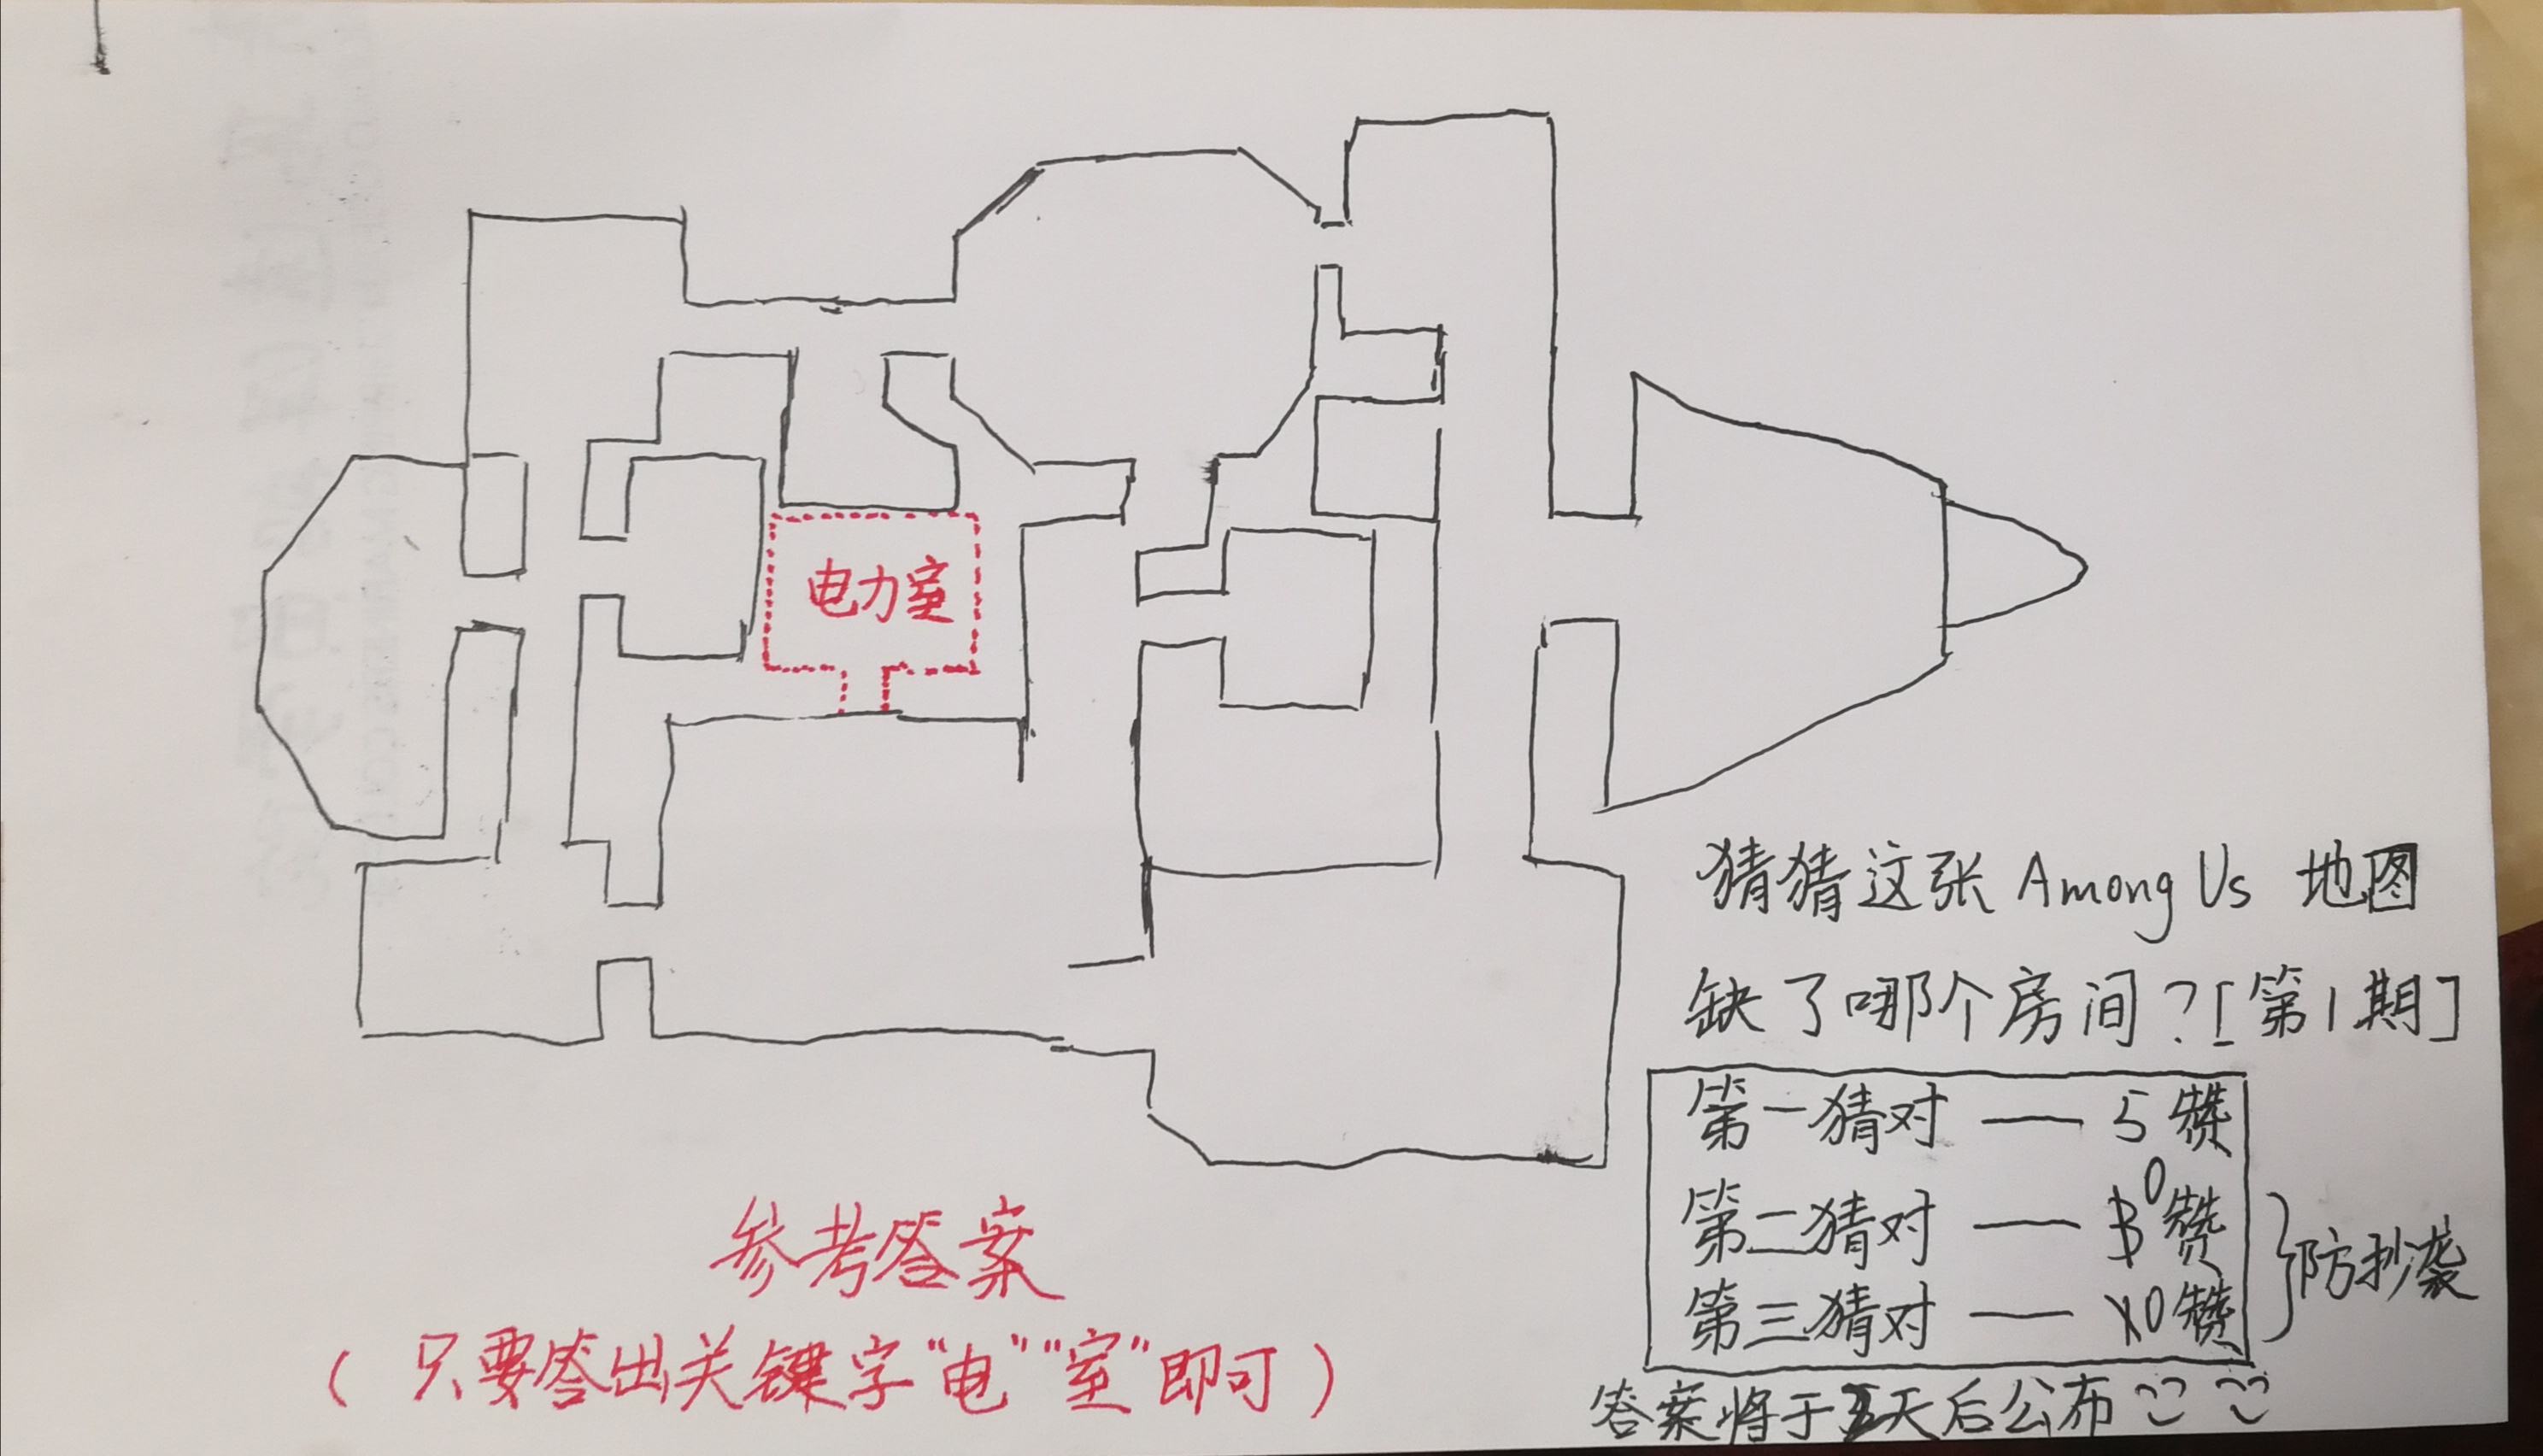 电力室
猜猜这张 Among Us 地图
缺了哪个房间？[第1期]
第一猜对 —— 5赞
第二猜对 —— 0赞
第三猜对 —— 0赞
防抄袭
答案将于天后公布
参考答案
（只要答出关键字“电”“室”即可）